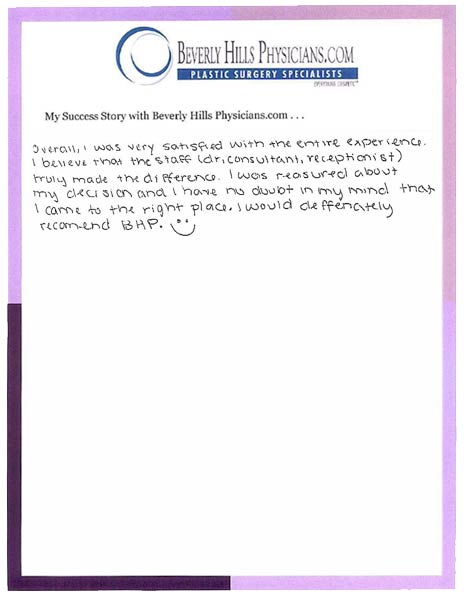 BEVERLY HILLS PHYSICIANS.COM
PLASTIC SURGERY SPECIALISTS
EVERYTHING COSMETIC
My Success Story with Beverly Hills Physicians.com . . .
Overall, I was very satisfied with the entire experience.
I believe that the staff (dr, consultant, receptionist)
truly made the difference. I was reasured about
my decision and I have no doubt in my mind that
I came to the right place. I would deffenately
recomend BHP.